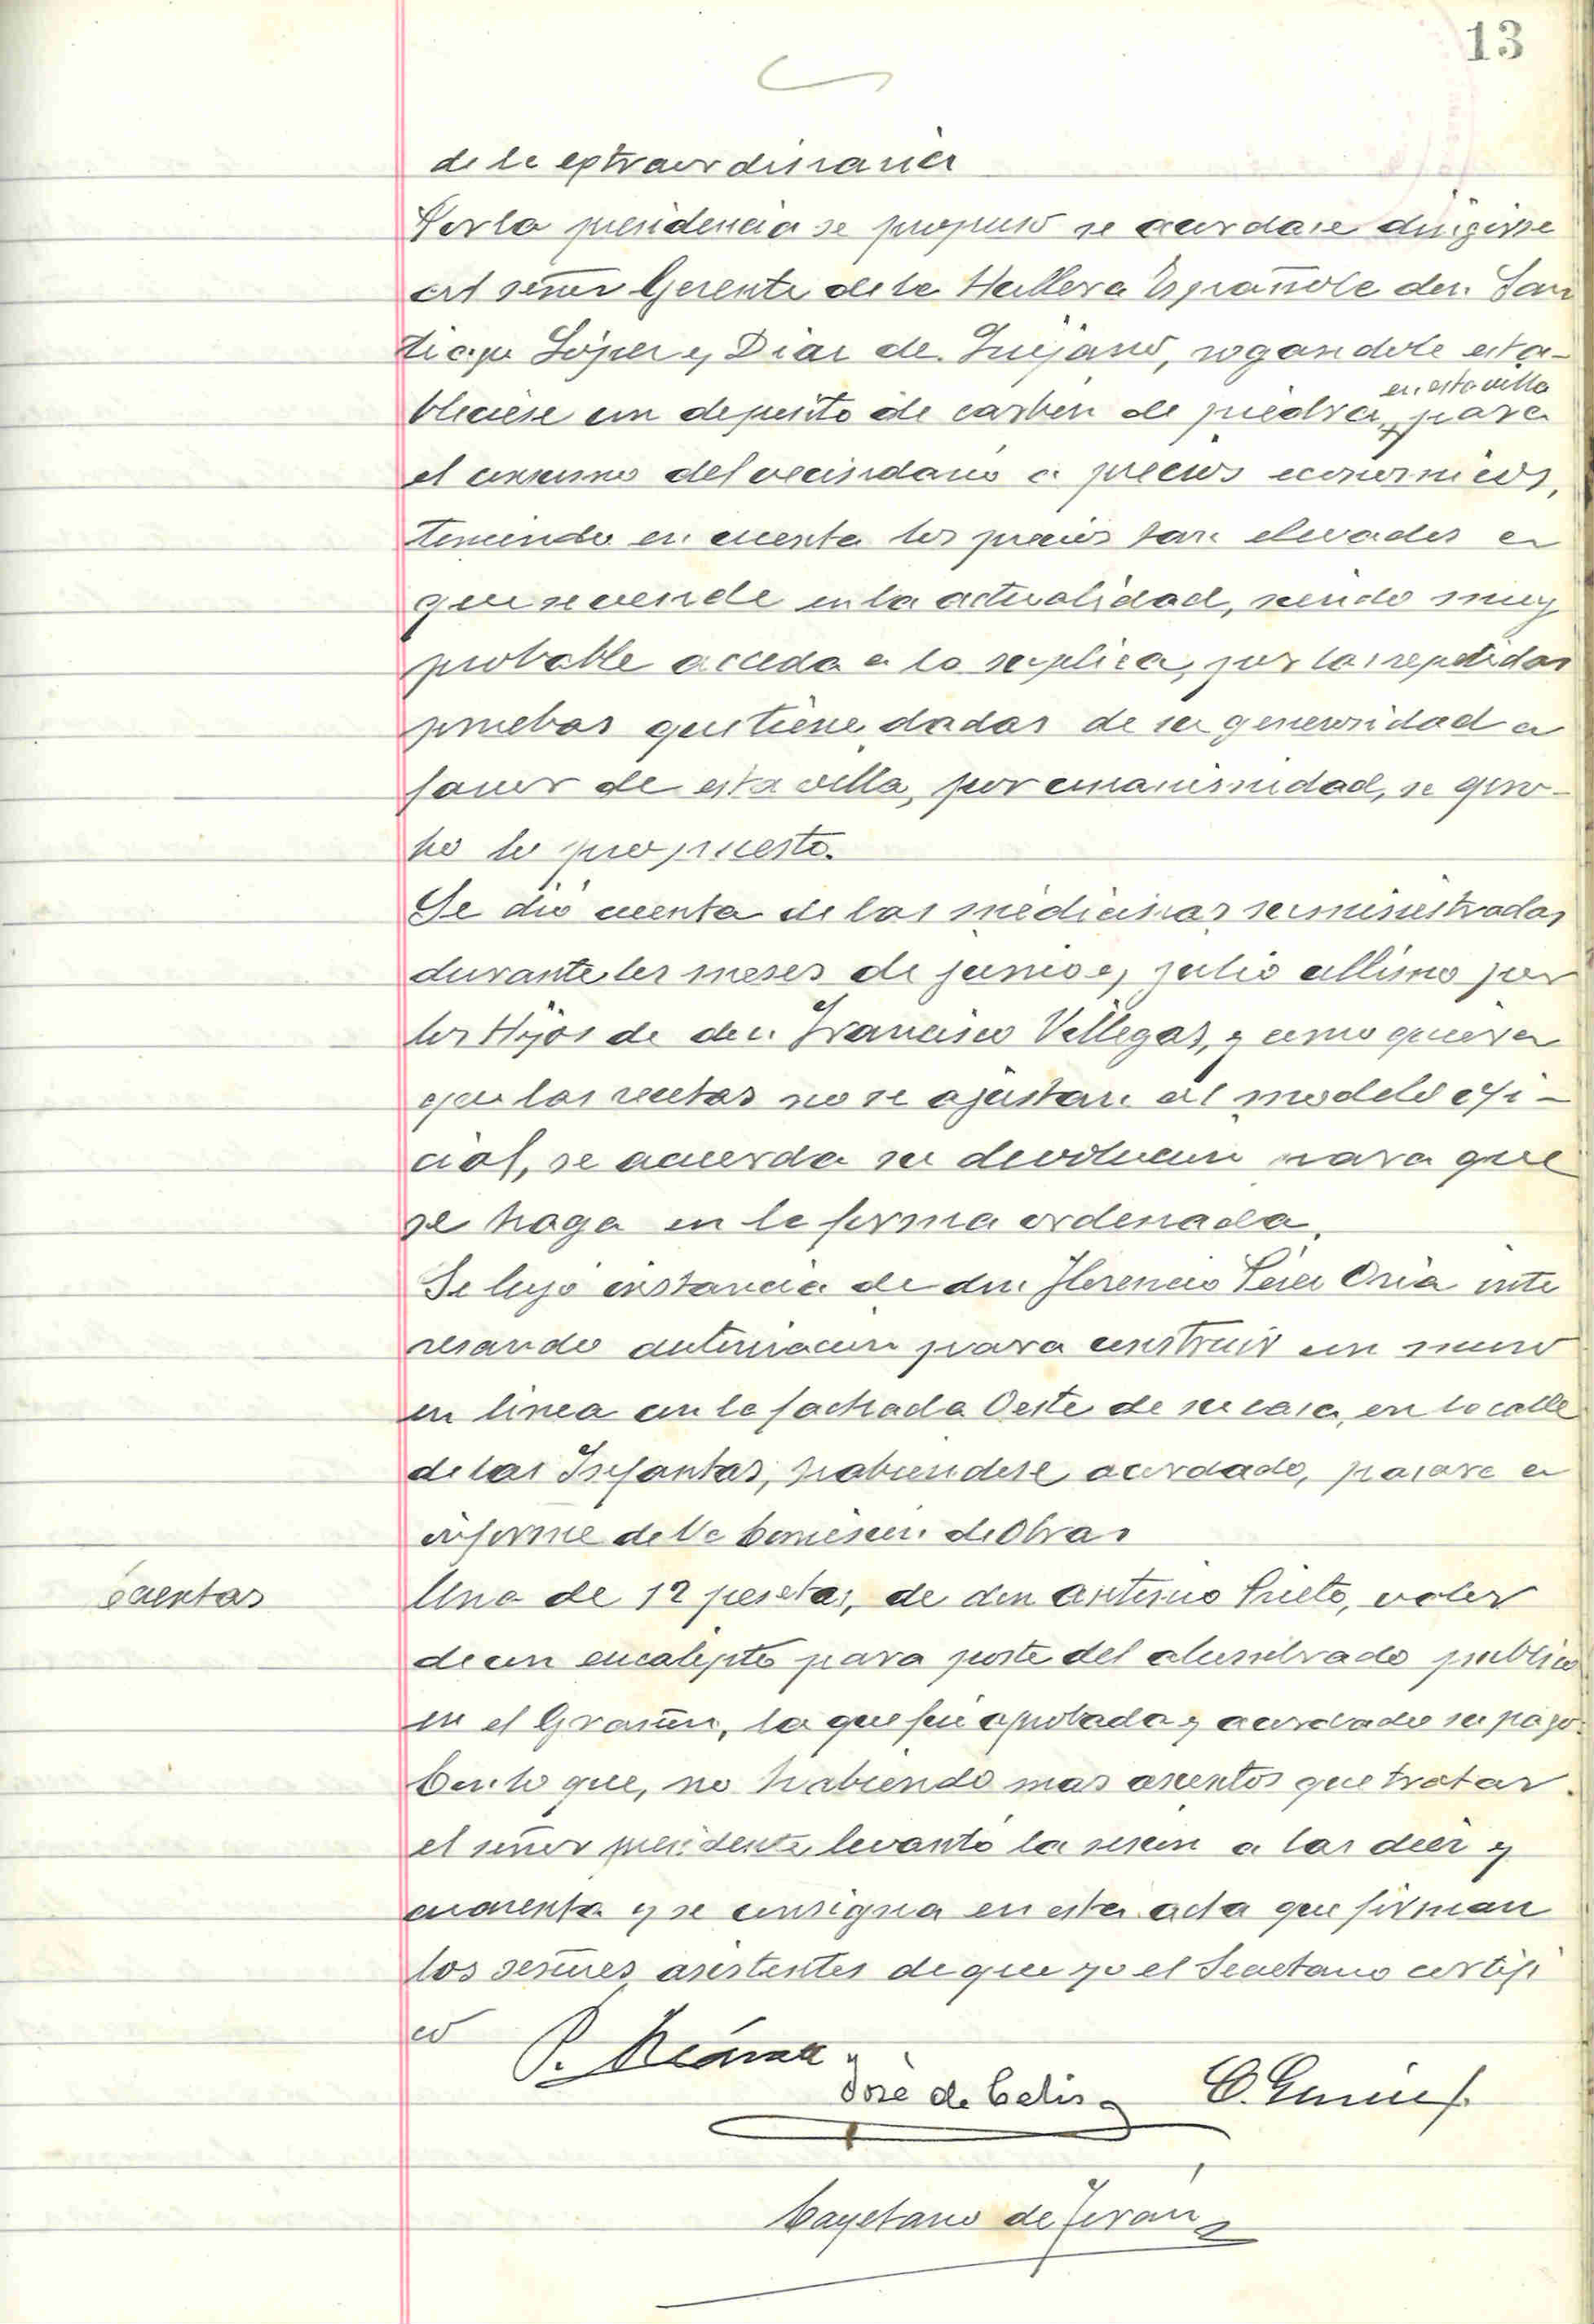 13
de la extraordinaria
Por la presidencia se propuso se acordase dirigirse
al señor Gerente de la Hullera Española don San
tiago López y Diaz de Quijano, rogandole esta-
en esta villa
bleciese un deposito de carbón de piedra, para
el consumo del vecindario a precios economicos,
teniendo en cuenta los precios tan elevados a
que se vende en la actualidad, siendo muy
probable acceda a la suplica, por las repetidas
pruebas que tiene dadas de su generosidad a
favor de esta villa, por unanimidad, se apro-
bo lo propuesto.
Se dió cuenta de las medicinas suministradas
durante los meses de junio y julio ultimo por
los Hijos de don Francisco Villegas, y como quiera
que las recetas no se ajustan al modelo ofi-
cial, se acuerda su devolucion para que
se haga en la forma ordenada.
Se leyó instancia de don Florencio Pérez Oria inte
resando autorizacion para construir un muro
en linea con la fachada Oeste de su casa, en la calle
de las Infantas, habiendose acordado, pasara a
informe de la Comision de Obras
Cuentas
Una de 12 pesetas, de don Antonio Prieto, valor
de un eucalipto para poste del alumbrado publico
en el Gramen, la que fue aprobada y acordado su pago.
Con lo que, no habiendo mas asuntos que tratar.
el señor presidente levantó la sesion a las diez y
cuarenta y se consigna en esta acta que firman
los señores asistentes de que yo el Secretario certifi
co
José de Celis
Cayetano de Terán